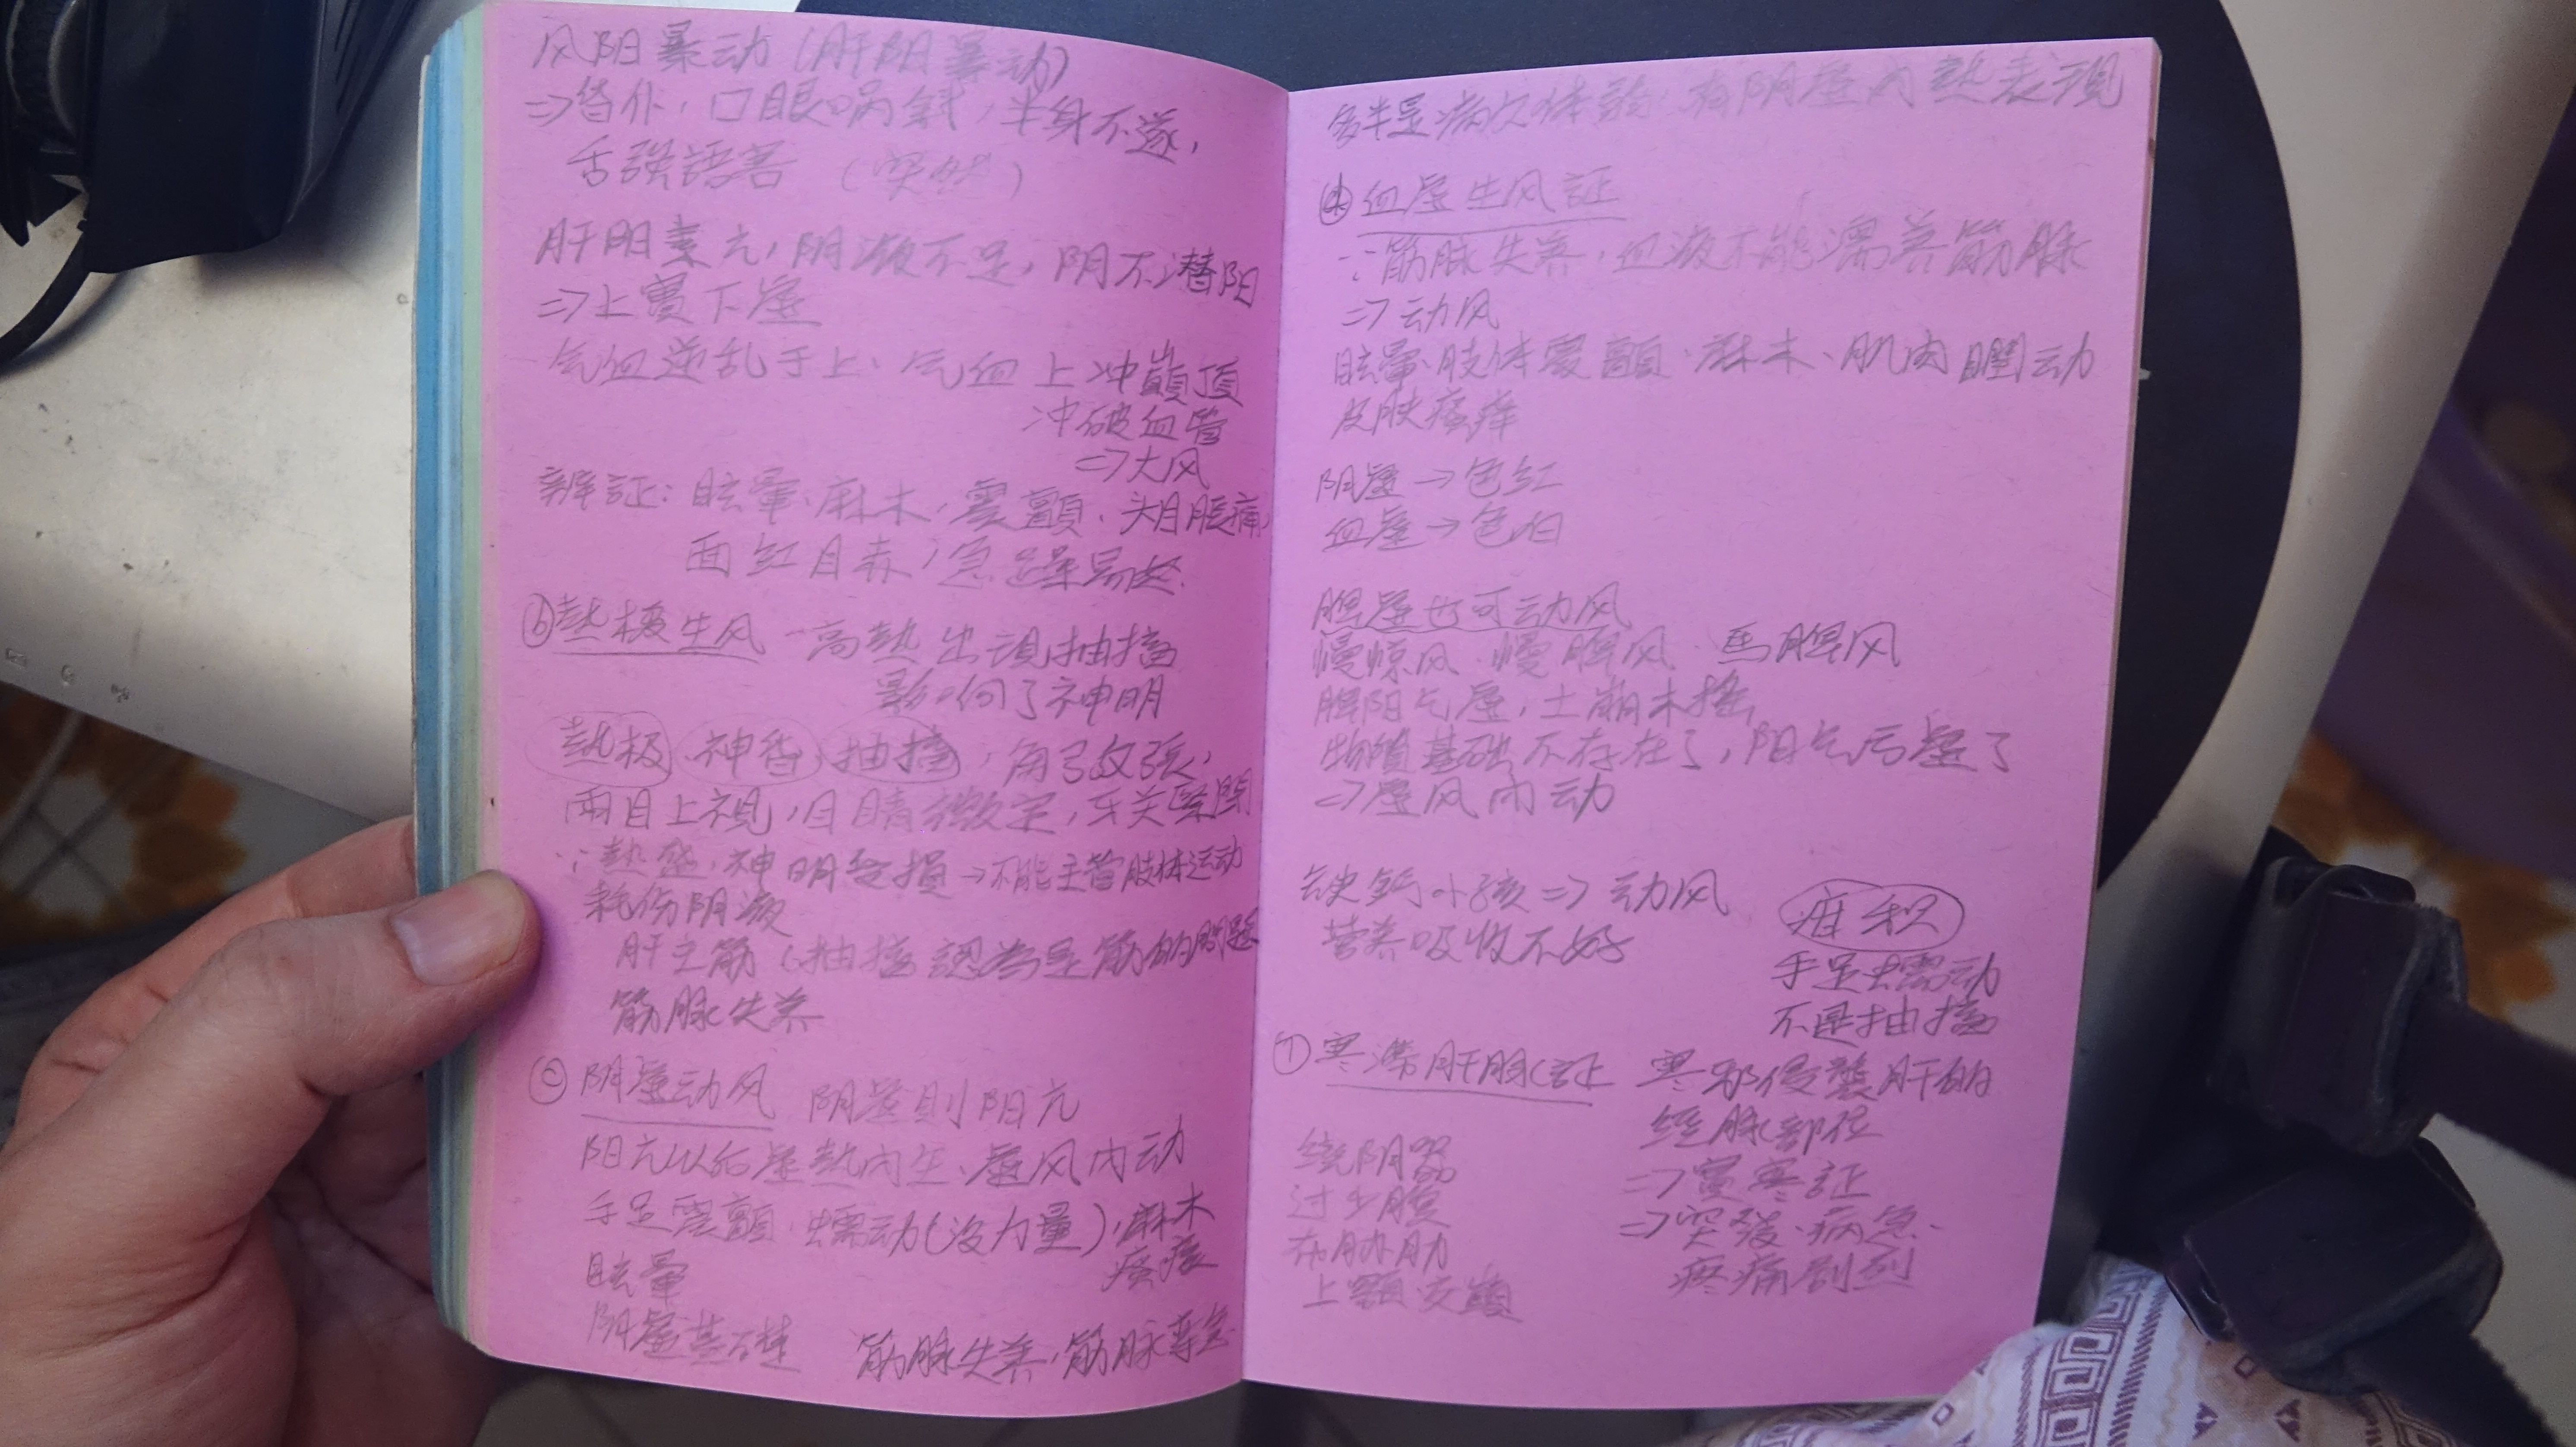 风阳暴动（肝阳暴动）
⇒昏仆，口眼喎斜，半身不遂，
舌强語謇 （突然）
肝阳素亢，阴液不足，阴不潜阳
⇒上實下虚
气血逆乱于上、气血上冲巔顶
冲破血管
⇒大风
辨証：眩暈、麻木、震顫、头目脹痛，
面红目赤，急躁易怒.
ⓑ熱極生风 - 高熱出現抽搐
影响了神明
熱极 神昏 抽搐，角弓反張，
兩目上視，目睛微定，牙关緊閉
∵熱盛，神明受損→不能主管肢体运动
耗伤阴液
肝主筋（抽搐認為是筋的問題
筋脉失养
ⓒ阴虚动风 阴虚則阳亢
阳亢以后虚熱内生、虚风内动
手足震顫、蠕动（没力量），麻木
眩暈 瘙癢
阴虚基礎 筋脉失养，筋脉挛急
多半是病久体弱，有阴虚内熱表現
ⓓ血虚生风証
∵筋脉失养，血液不能濡养筋脉
⇒动风
眩暈、肢体震顫、麻木、肌肉瞤动
皮肤瘙痒
阴虚→色红
血虚→色白
脾虚也可动风
慢惊风、慢脾风、馬脾风
脾阳气虚，土崩木搖
物質基础不存在了，阳气亏虚了
⇒虚风内动
缺鈣小孩⇒动风 疳积
营养吸收不好
手足蠕动
不是抽搐
⑦寒滞肝脉証 寒邪侵襲肝的
经脉部位
绕阴器 ⇒實寒証
过少腹 ⇒突發、病急、
布胁肋 疼痛剧烈
上顎交巔